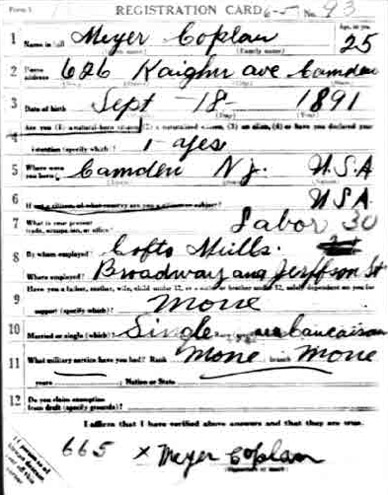 Form 1 REGISTRATION CARD No. 93
1 Name in full Meyer Coplan Age, in yrs. 25
(Given name) (Family name)
2 Home address 626 Kaighn ave Camden
3 Date of birth Sept 18 1891
(Month) (Day) (Year)
4 Are you (1) a natural-born citizen, (2) a naturalized citizen, (3) an alien, (4) or have you declared your
intention (specify which)? 1 yes
5 Where were you born? Camden N.J. U.S.A
6 If not a citizen, of what country are you a citizen or subject? U.S.A.
7 What is your present trade, occupation, or office? Labor 30
8 By whom employed? Mills.
Where employed? Broadway and St
9 Have you a father, mother, wife, child under 12, or a sister or brother under 12, solely dependent on you for
support (specify which)? None
10 Married or single (which)? Single Race Caucaison
11 What military service have you had? Rank None branch None
years Nation or State
12 Do you claim exemption from draft (specify grounds)?
I affirm that I have verified above answers and that they are true.
665 x Meyer Coplan
(Signature or mark)